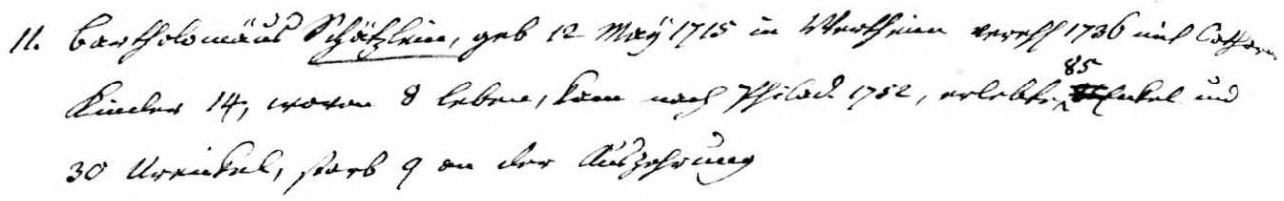 11. Bartholomäus Schätzlein, geb 12 May 1715 in Wertheim verehl 1736 mit Cathar
Kinder 14, wovon 8 leben, kam nach Philad. 1752, erlebte 85 Enkel und
30 Urenkel, starb 9 an der Auszehrung